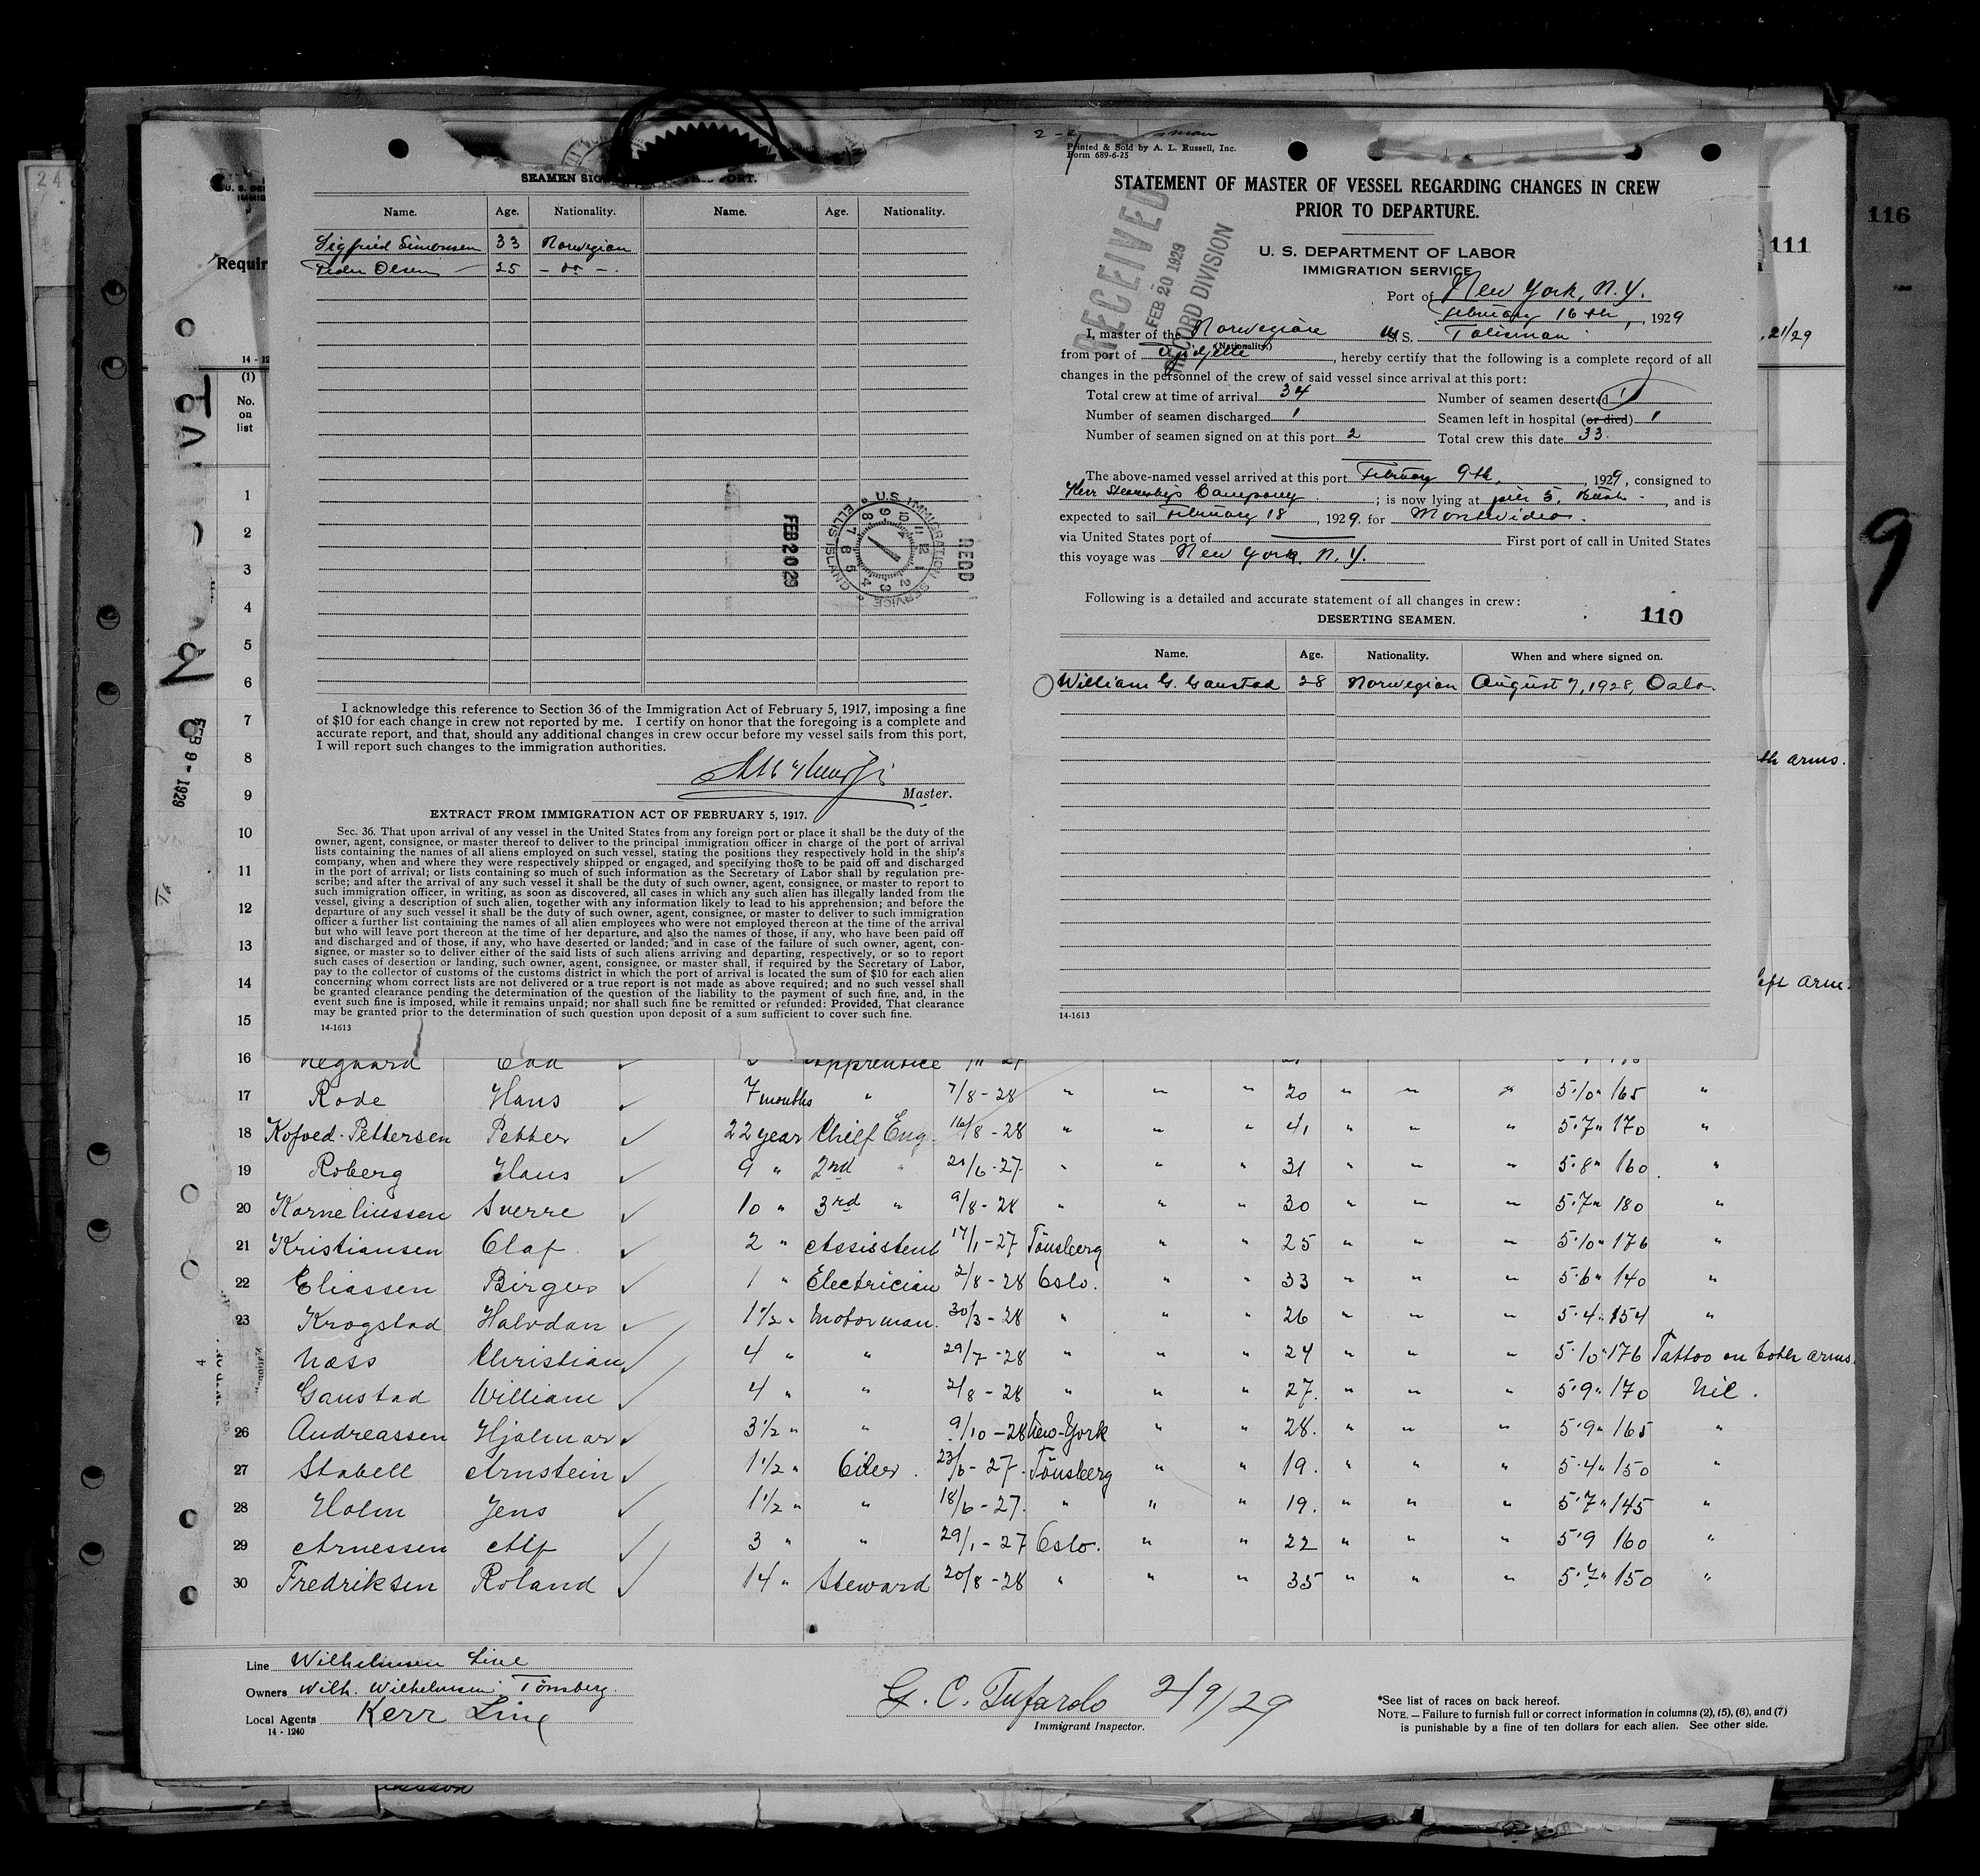 SEAMEN SIG PORT.
Name. Age. Nationality. Name. Age. Nationality.
Sigfried Simonsen 33 Norwegian
Peder Olsen — 25 - do -.
I acknowledge this reference to Section 36 of the Immigration Act of February 5, 1917, imposing a fine
of $10 for each change in crew not reported by me. I certify on honor that the foregoing is a complete and
accurate report, and that, should any additional changes in crew occur before my vessel sails from this port,
I will report such changes to the immigration authorities.
Master.
EXTRACT FROM IMMIGRATION ACT OF FEBRUARY 5, 1917.
Sec. 36. That upon arrival of any vessel in the United States from any foreign port or place it shall be the duty of the
owner, agent, consignee, or master thereof to deliver to the principal immigration officer in charge of the port of arrival
lists containing the names of all aliens employed on such vessel, stating the positions they respectively hold in the ship's
company, when and where they were respectively shipped or engaged, and specifying those to be paid off and discharged
in the port of arrival; or lists containing so much of such information as the Secretary of Labor shall by regulation pre-
scribe; and after the arrival of any such vessel it shall be the duty of such owner, agent, consignee, or master to report to
such immigration officer, in writing, as soon as discovered, all cases in which any such alien has illegally landed from the
vessel, giving a description of such alien, together with any information likely to lead to his apprehension; and before the
departure of any such vessel it shall be the duty of such owner, agent, consignee, or master to deliver to such immigration
officer a further list containing the names of all alien employees who were not employed thereon at the time of the arrival
but who will leave port thereon at the time of her departure, and also the names of those, if any, who have been paid off
and discharged and of those, if any, who have deserted or landed; and in case of the failure of such owner, agent, con-
signee, or master so to deliver either of the said lists of such aliens arriving and departing, respectively, or so to report
such cases of desertion or landing, such owner, agent, consignee, or master shall, if required by the Secretary of Labor,
pay to the collector of customs of the customs district in which the port of arrival is located the sum of $10 for each alien
concerning whom correct lists are not delivered or a true report is not made as above required; and no such vessel shall
be granted clearance pending the determination of the question of the liability to the payment of such fine, and, in the
event such fine is imposed, while it remains unpaid; nor shall such fine be remitted or refunded: Provided, That clearance
may be granted prior to the determination of such question upon deposit of a sum sufficient to cover such fine.
14-1613
FEB 20 29
U.S. IMMIGRATION SERVICE ELLIS ISLAND
RECD
Printed & Sold by A. L. Russell, Inc.
Form 689-6-25
STATEMENT OF MASTER OF VESSEL REGARDING CHANGES IN CREW
PRIOR TO DEPARTURE.
U. S. DEPARTMENT OF LABOR
IMMIGRATION SERVICE
RECEIVED
FEB 20 1929
RECORD DIVISION
Port of New York, N.Y.
February 16th, 1929
I, master of the Norwegian M.S. Talisman
(Nationality.)
from port of Djidjelli, hereby certify that the following is a complete record of all
changes in the personnel of the crew of said vessel since arrival at this port:
Total crew at time of arrival 34 Number of seamen deserted 1
Number of seamen discharged 1 Seamen left in hospital (or died) 1
Number of seamen signed on at this port 2 Total crew this date 33.
The above-named vessel arrived at this port February 9th, 1929, consigned to
Kerr Steamship Company; is now lying at pier 5, Bush -, and is
expected to sail February 18, 1929. for Montevideo.
via United States port of First port of call in United States
this voyage was New York. N.Y.
Following is a detailed and accurate statement of all changes in crew:
DESERTING SEAMEN. 110
Name. Age. Nationality. When and where signed on.
William G. Gaustad 28 Norwegian August 7, 1928, Oslo.
14-1613
111
116
9
21/29
th arms.
left arm.
Requir
(1)
No.
on
list
FEB 9 - 1929
1
2
3
4
5
6
7
8
9
10
11
12
13
14
15
16 Apprentice
17 Rode Hans 7 months " 7/8-28 " " " 20 " " " 5.10" 165 "
18 Kofoed-Pettersen Petter 22 year Chief Eng. 16/8-28 " " " 41 " " " 5.7" 170 "
19 Roberg Hans 9 " 2nd " 21/6-27 " " " 31 " " " 5.8" 160 "
20 Korneliussen Sverre 10 " 3rd " 9/8-28 " " " 30 " " " 5.7" 180 "
21 Kristiansen Olaf 2 " Assistent 17/1-27 Tönsberg " " 25 " " " 5.10" 176 "
22 Eliassen Birger 1 " Electrician 2/8-28 Oslo. " " 33 " " " 5.6" 140 "
23 Krogstad Halvdan 1 1/2 " Motorman. 30/3-28 " " " 26 " " " 5.4" 154 "
Næss Christian 4 " " 29/7-28 " " " 24 " " " 5.10" 176 Tattoo on both arms.
Gaustad William 4 " " 2/8-28 " " " 27. " " " 5.9" 170 Nil.
26 Andreassen Hjalmar 3 1/2 " " 9/10-28 New-York " " 28. " " " 5.9" 165 "
27 Stabell Arnstein 1 1/2 " Oiler. 23/6-27. Tönsberg " " 19. " " " 5.4" 150 "
28 Holm Jens 1 1/2 " " 18/6-27. " " " 19. " " " 5.7" 145 "
29 Arnessen Alf 3 " " 29/1-27 Oslo. " " 22 " " " 5.9 160 "
30 Fredriksen Roland 14 " Steward 20/8-28 " " " 35 " " " 5.7" 150 "
Line Wilhelmsen Line
Owners Wilh. Wilhelmsen. Tönsberg.
Local Agents Kerr Line
14 - 1240
G. C. Tufarolo 2/9/29
Immigrant Inspector.
*See list of races on back hereof.
NOTE. — Failure to furnish full or correct information in columns (2), (5), (6), and (7)
is punishable by a fine of ten dollars for each alien. See other side.